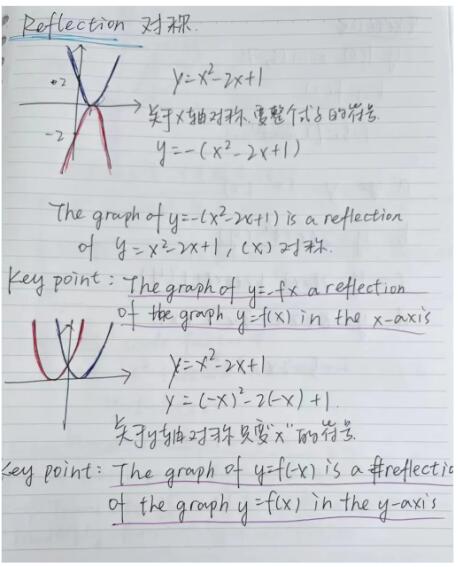 Reflection 对称.
2
y=x²-2x+1
关于x轴对称.变整个式子的符号
-2
y=-(x²-2x+1)
The graph of y=-(x²-2x+1) is a reflection
of y=x²-2x+1, (x) 对称.
Key point: The graph of y=-fx a reflection
of the graph y=f(x) in the x-axis
y=x²-2x+1
y=(-x)²-2(-x)+1.
关于y轴对称 只变"x"的符号.
Key point: The graph of y=f(-x) is a reflectio
of the graph y=f(x) in the y-axis